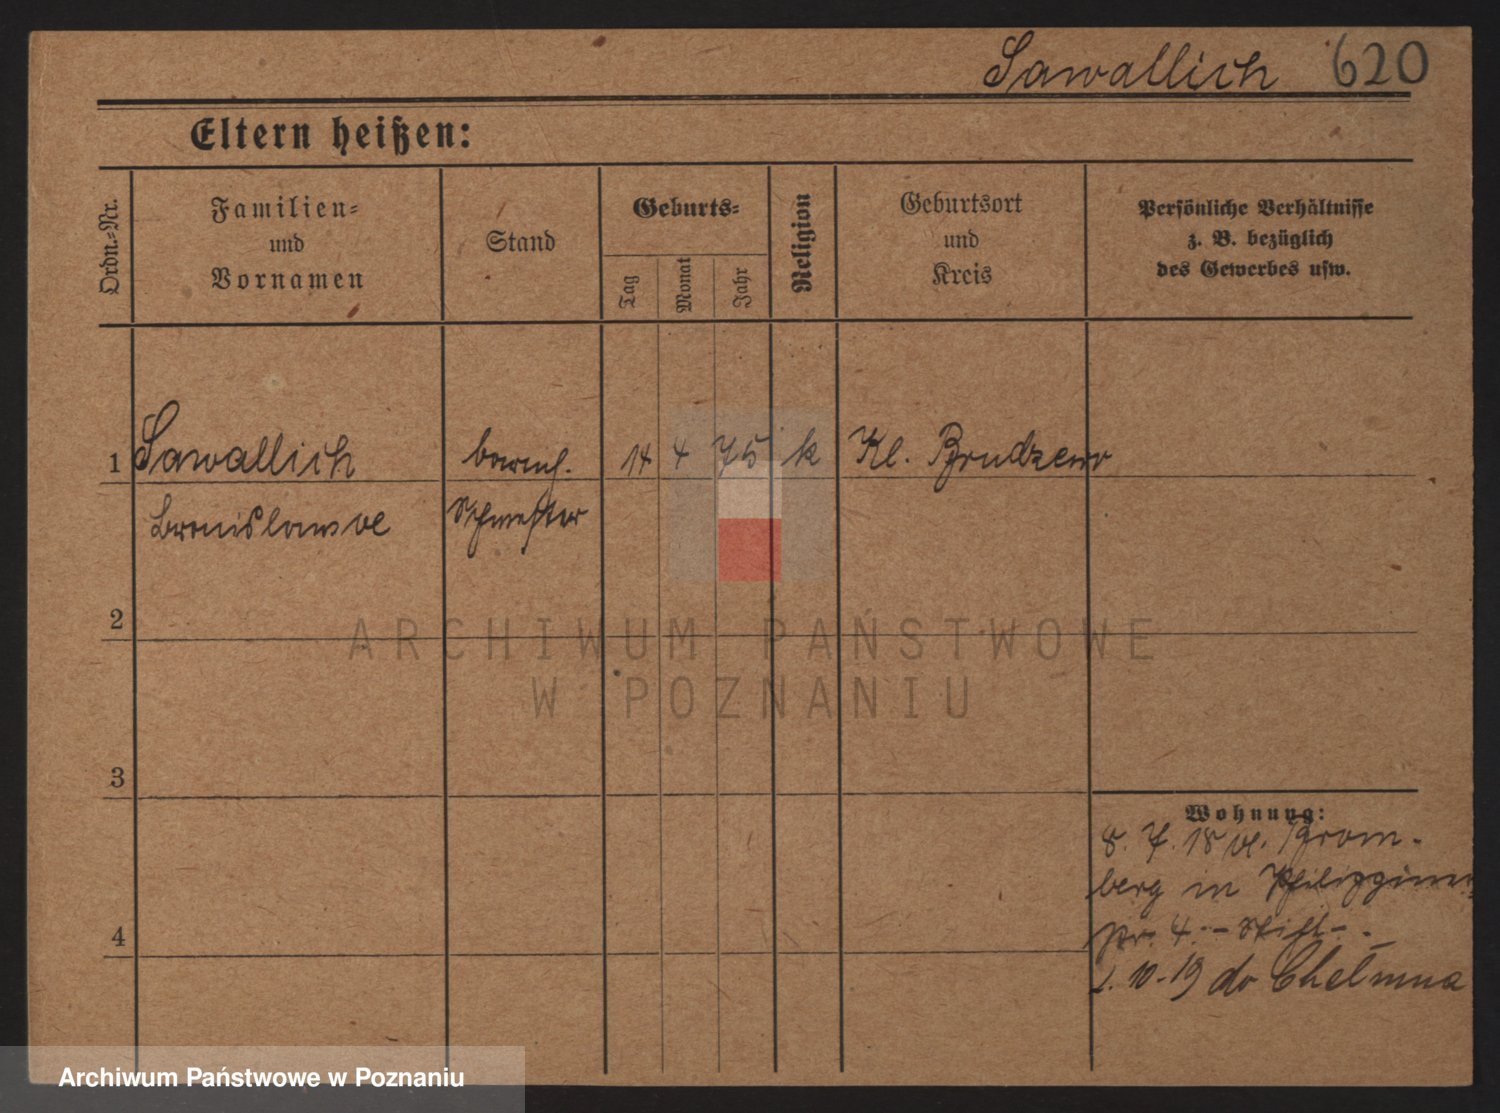 Sawallich 620
Eltern heißen:
Ordn.-Nr.
Familien-
und
Vornamen
Stand
Geburts-
Tag
Monat
Jahr
Religion
Geburtsort
und
Kreis
Persönliche Verhältnisse
z. B. bezüglich
des Gewerbes usw.
1 Sawallich barmh. 14 4 75 k Kl. Brudzewo
Bronislawa Schwester
2
3
4
Wohnung:
8. 7. 18 a. Brom-
berg in Philippinen
str. 4. - Stift -
1. 10-19 do Chełmna
ARCHIWUM PAŃSTWOWE
W POZNANIU
Archiwum Państwowe w Poznaniu